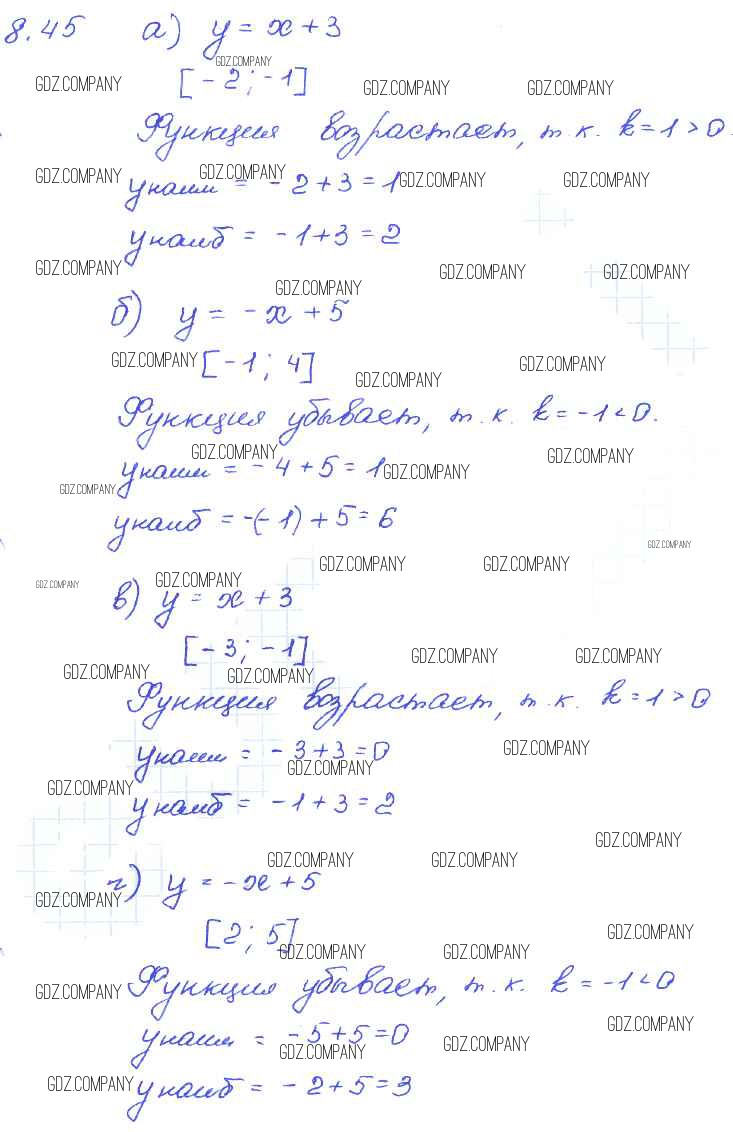 8.45 а) y = x + 3
GDZ.COMPANY
GDZ.COMPANY [-2; -1] GDZ.COMPANY GDZ.COMPANY
Функция возрастает, т.к. k = 1 > 0.
GDZ.COMPANY GDZ.COMPANY GDZ.COMPANY GDZ.COMPANY
y наим = -2 + 3 = 1
y наиб = -1 + 3 = 2
GDZ.COMPANY GDZ.COMPANY GDZ.COMPANY GDZ.COMPANY
б) y = -x + 5
GDZ.COMPANY [-1; 4] GDZ.COMPANY GDZ.COMPANY
Функция убывает, т.к. k = -1 < 0.
GDZ.COMPANY GDZ.COMPANY
y наим = -4 + 5 = 1 GDZ.COMPANY
GDZ.COMPANY
y наиб = -(-1) + 5 = 6
GDZ.COMPANY
GDZ.COMPANY GDZ.COMPANY GDZ.COMPANY GDZ.COMPANY
в) y = x + 3
[-3; -1] GDZ.COMPANY GDZ.COMPANY
GDZ.COMPANY GDZ.COMPANY
Функция возрастает, т.к. k = 1 > 0
y наим = -3 + 3 = 0 GDZ.COMPANY
GDZ.COMPANY
GDZ.COMPANY
y наиб = -1 + 3 = 2
GDZ.COMPANY
GDZ.COMPANY GDZ.COMPANY
г) y = -x + 5
GDZ.COMPANY
[2; 5] GDZ.COMPANY
GDZ.COMPANY GDZ.COMPANY
GDZ.COMPANY Функция убывает, т.к. k = -1 < 0
GDZ.COMPANY
y наим = -5 + 5 = 0
GDZ.COMPANY GDZ.COMPANY
GDZ.COMPANY y наиб = -2 + 5 = 3